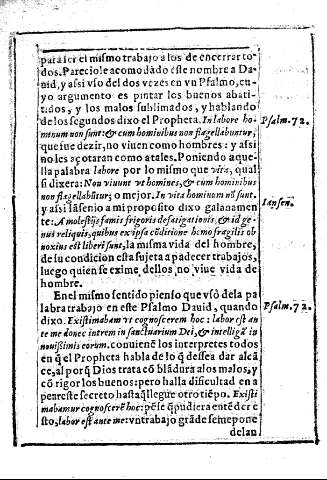 para ser el mismo trabajo a los de encerrar to-
dos. Pareciole acomodado este nombre a Da-
uid, y assi vso del dos vezes en vn Psalmo, cu-
yo argumento es pintar los buenos abati-
tidos, y los malos sublimados, y hablando
de los segundos dixo el Propheta. In labore ho-
minum non sunt: & cum hominibus non flagellabuntur,
que fue dezir, no viuen como hombres: y assi
no les açotaran como a tales. Poniendo aque-
lla palabra labore por lo mismo que vita, qual
si dixera: Non viuunt vt homines, & cum hominibus
non flagellabũtur; o mejor. In vita hominum nõ sunt.
y assi Iãsenio a mi proposito dixo galanamen
te: A molestijs famis frigoris defatigationis, & id ge-
nus reliquis, quibus ex ipsa cõditione homo fragilis ob
noxius est liberi sunt, la misma vida del hombre,
de su condicion esta sujeta a padecer trabajos,
luego quien se exime dellos, no viue vida de
hombre.
En el mismo sentido pienso que vsò de la pa
labra trabajo en este Psalmo Dauid, quando
dixo. Existimabam vt cognoscerem hoc: labor est an-
te me donec intrem in sanctuarium Dei, & intelligã in
nouissimis eorum. conuienē los interpretes todos
en q̃ el Propheta habla de lo q̃ dessea dar alcã
ce, al porq̃ Dios trata cõ blãdura a los malos, y
cõ rigor los buenos: pero halla dificultad en a
pear este secreto hasta q̃ llegue otro tiẽpo. Existi
mabam vt cognoscerẽ hoc: pẽse q̃ pudiera entẽder e
sto, labor est ante me: vn trabajo grãde se me pone
delan
Psalm. 72.
Iansen.
Psalm. 72.